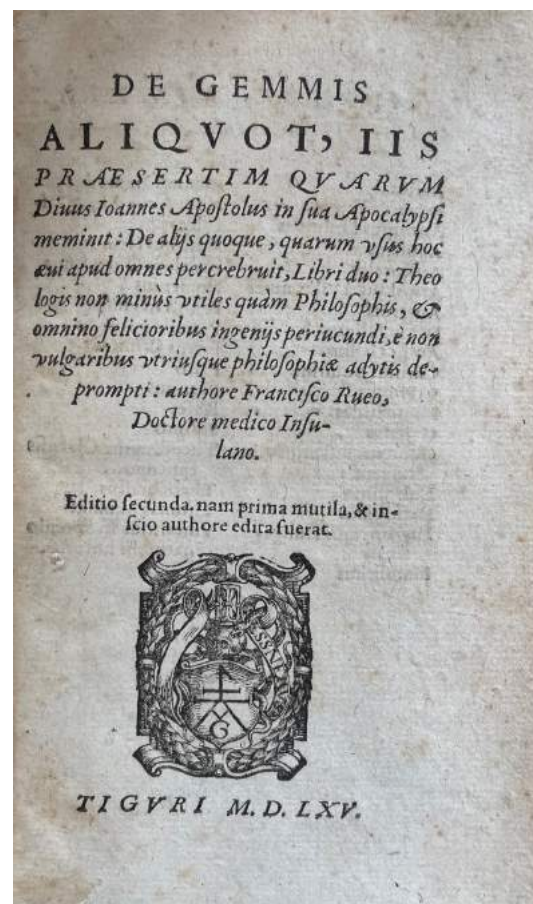 DE GEMMIS
ALIQVOT, IIS
PRÆSERTIM QVARVM
Diuus Ioannes Apoſtolus in ſua Apocalypſi
meminit: De alijs quoque, quarum vſus hoc
æui apud omnes percrebruit, Libri duo: Theo
logis non minùs vtiles quàm Philoſophis, &
omnino felicioribus ingenijs periucundi, è non
vulgaribus vtriuſque philoſophiæ adytis de-
prompti: authore Franciſco Rueo,
Doctore medico Inſu-
lano.
Editio ſecunda. nam prima mutila, & in-
ſcio authore edita fuerat.
G
TIGVRI M. D. LXV.